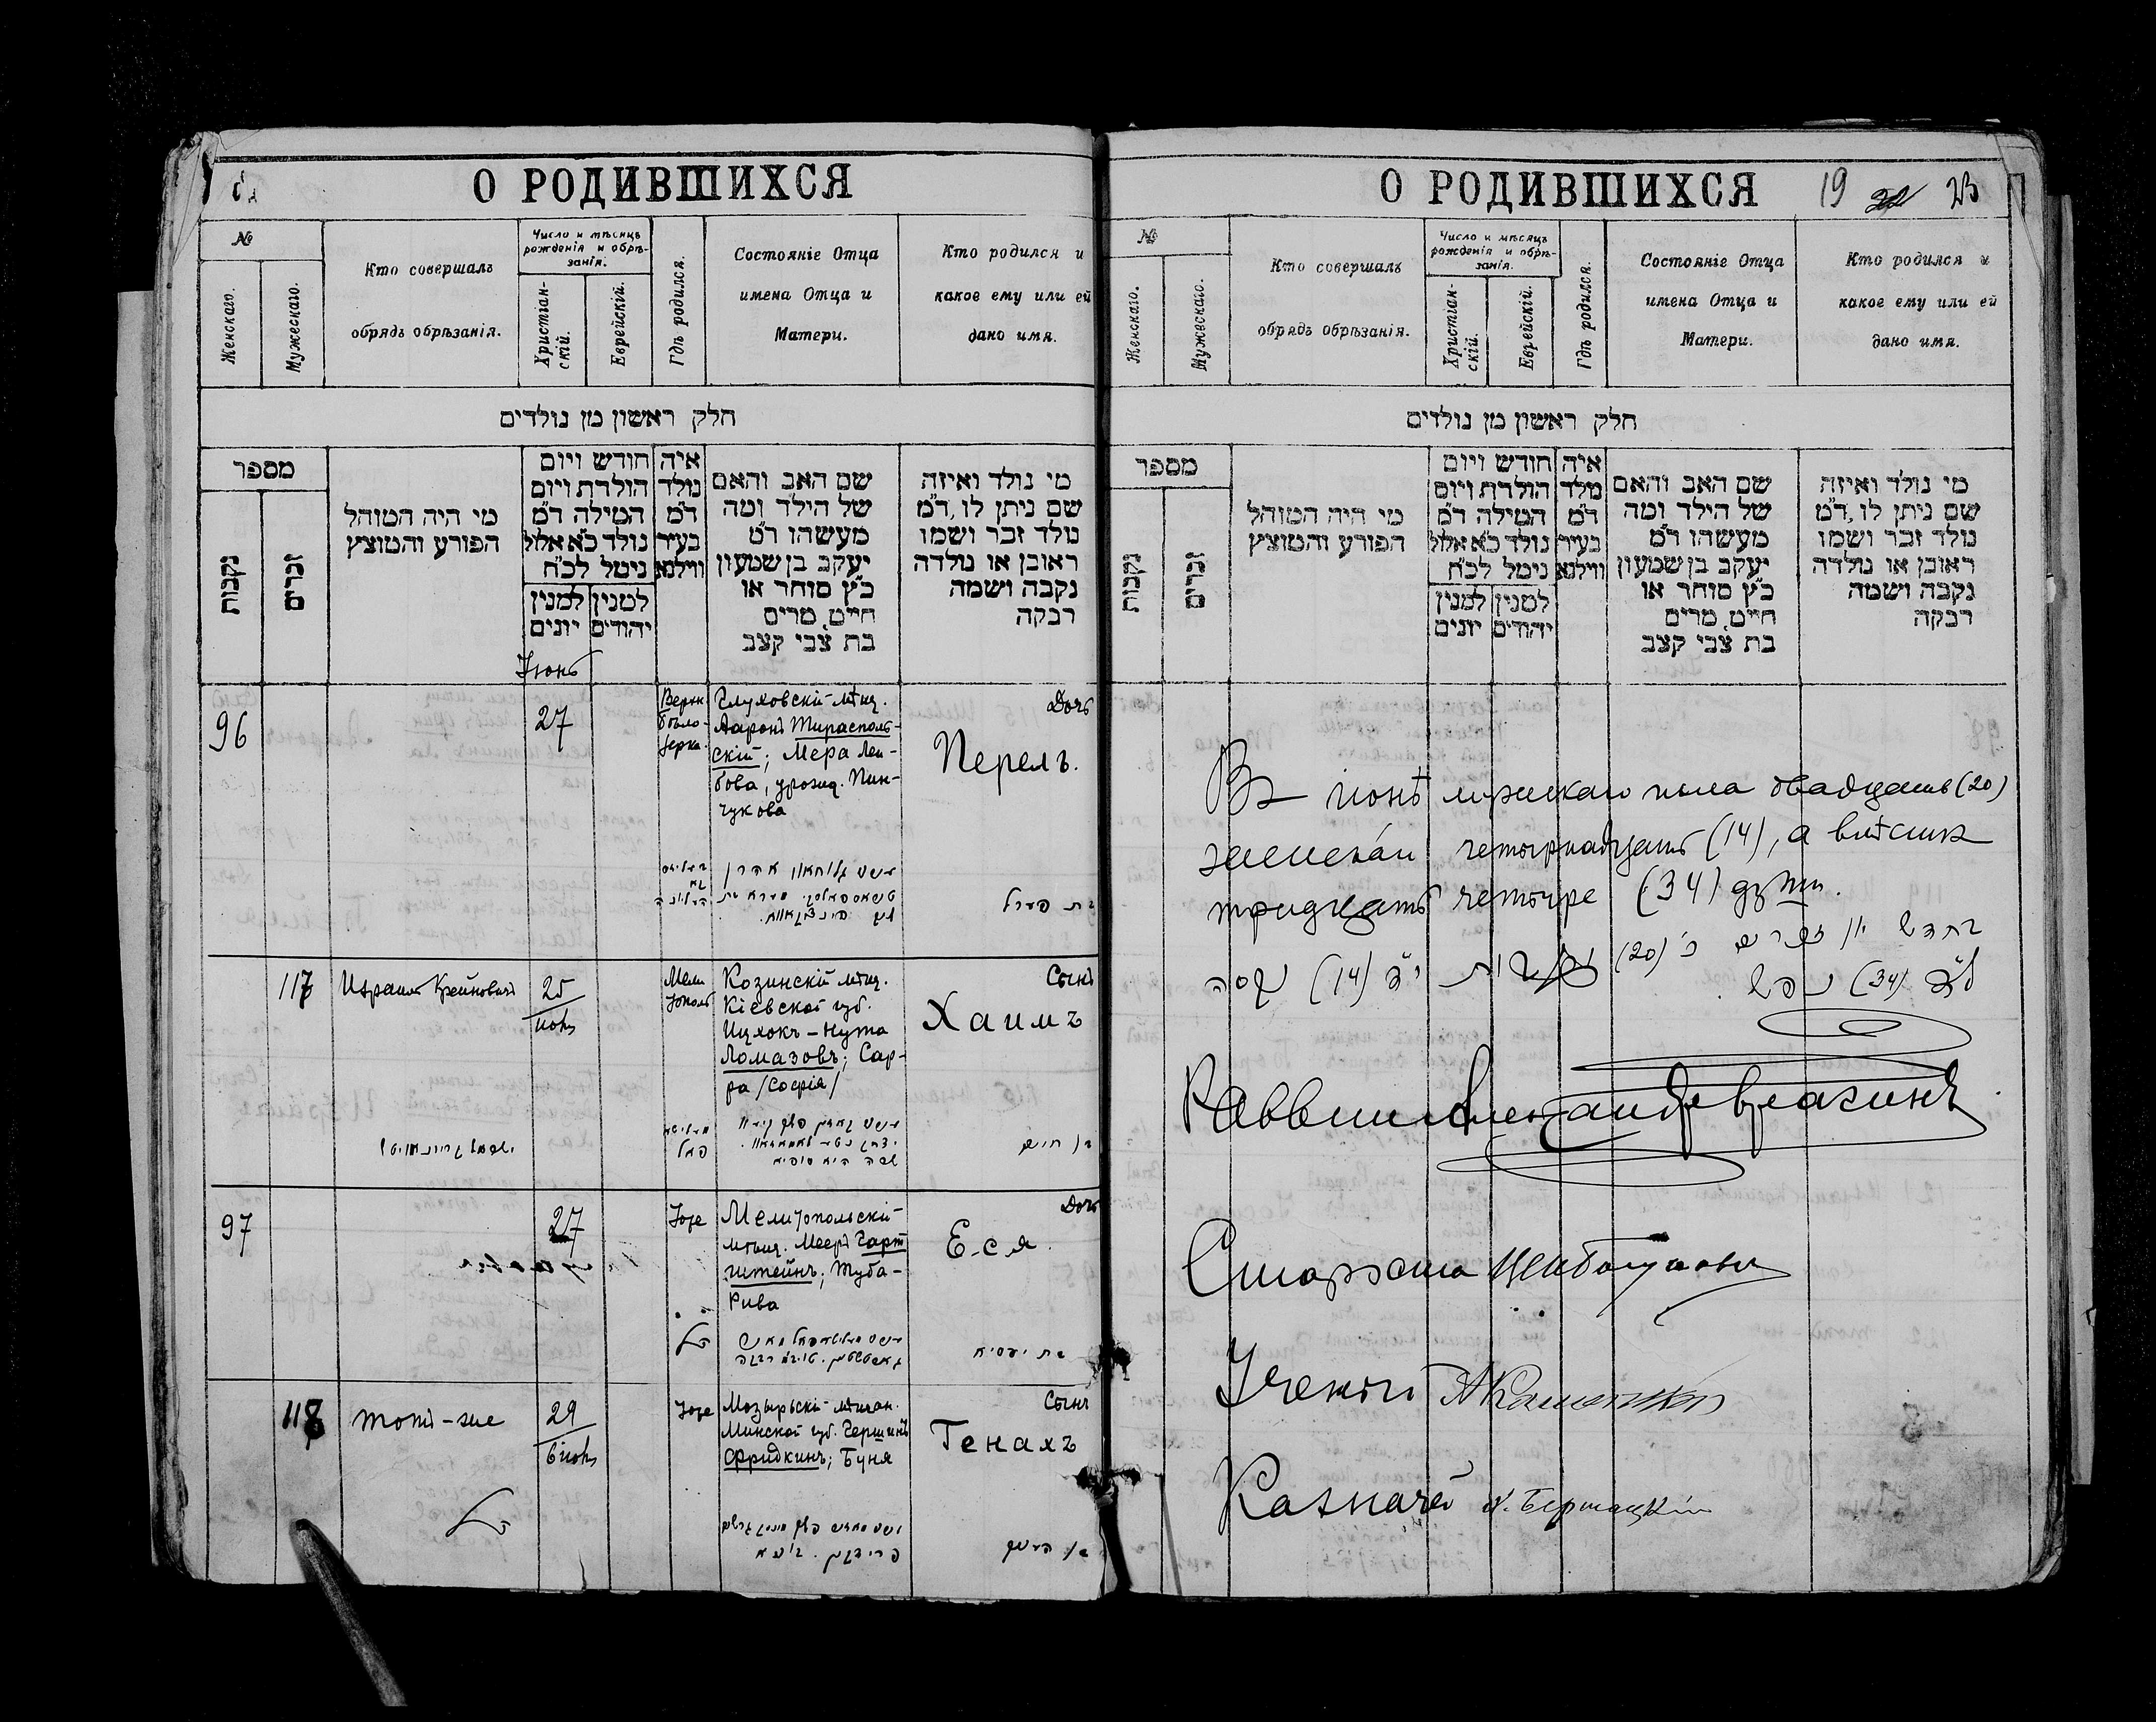 О РОДИВШИХСЯ
№
Женскаго.
Мужескаго.
Кто совершалъ
обрядъ обрѣзанія.
Число и мѣсяцъ
рожденія и обрѣ-
занія.
Христіан-
скій.
Еврейскій.
Гдѣ родился.
Состояніе Отца
имена Отца и
Матери.
Кто родился и
какое ему или ей
дано имя.
חלק ראשון מן נולדים
מספר
נקבות
זכרים
מי היה המוהל
הפורע והמוצץ
חודש ויום
הולדת ויום
המילה ד״מ
נולד כ״א אלול
נימל לכ״ח
למנין
יונים
למנין
יהודים
איה
נולד
ד״מ
בעיר
ווילנא
שם האב והאם
של הילד ומה
מעשהו ד״מ
יעקב בן שמעון
כ״ץ סוחר או
חייט, מרים
בת צבי קצב
מי נולד ואיזה
שם ניתן לו, ד״מ
נולד זכר ושמו
ראובן או נולדה
נקבה ושמה
רבקה
Іюнь
96
27
Верхн.
бѣло-
зерка.
Глуховскій мѣщ.
Ааронъ Тирасполь-
скій; Мера Лей-
бова, урожд. Пин-
чукова
Дочь
Перель.
בת פערל
117
Израиль Крейновичъ
25
іюнь
Мели
тополь
Козинскій мѣщ.
Кіевской губ.
Ицхокъ-Нута
Ломазовъ; Сар-
ра /Софія/
Сынъ
Хаимъ
בן חיים
97
27
Тоже
Мелитопольскій
мѣщ. Мееръ Гарт
штейнъ; Туба-
Рива
Дочь
Е-ся
118
тотъ-же
29
Тоже
Мозырьскій мѣщан.
Минской губ. Гершинъ
Фридкинъ; Буня
Сынъ
Генахъ
О РОДИВШИХСЯ
19
23
№
Женскаго.
Мужескаго.
Кто совершалъ
обрядъ обрѣзанія.
Число и мѣсяцъ
рожденія и обрѣ-
занія.
Христіан-
скій.
Еврейскій.
Гдѣ родился.
Состояніе Отца
имена Отца и
Матери.
Кто родился и
какое ему или ей
дано имя.
חלק ראשון מן נולדים
מספר
נקבות
זכרים
מי היה המוהל
הפורע והמוצץ
חודש ויום
הולדת ויום
המילה ד״מ
נולד כ״א אלול
נימל לכ״ח
למנין
יונים
למנין
יהודים
איה
מלד
ד״מ
בעיר
ווילנא
שם האב והאם
של הילד ומה
מעשהו ד״מ
יעקב בן שמעון
כ״ץ סוחר או
חייט, מרים
בת צבי קצב
מי נולד ואיזה
שם ניתן לו, ד״מ
נולד זכר ושמו
ראובן או נולדה
נקבה ושמה
רבקה
Въ іюнѣ мужескаго пола двадцать (20)
женскаго четырнадцать (14), а вмѣстѣ
тридцать четыре (34) души.
בחדש יון זכרים כ׳ (20) נקבות י״ד (14)
ל״ד (34) נפש
Раввинъ Александръ Брагинъ
Староста
Ученый
Казначей